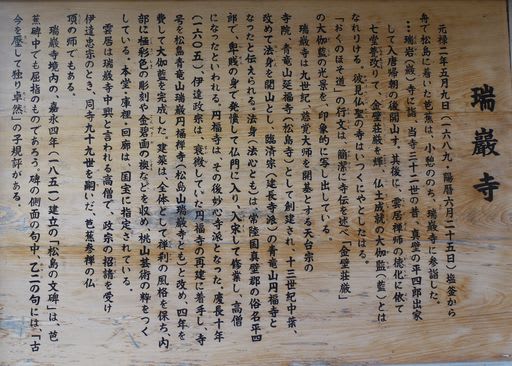 瑞巌寺
元禄二年五月九日(一六八九、陽暦六月二十五日)塩釜から
舟で松島に着いた芭蕉は、小憩ののち、瑞巌寺に参詣した。
…瑞岩(巌)寺に詣、当寺三十二世の昔、真壁の平四郎出家
して入唐帰朝の後開山す。其後に、雲居禅師の徳化に依て
七堂甍改りて、金壁荘厳光を輝、仏土成就の大伽藍(藍)とは
なれりける。彼見仏聖の寺はいづくにやとしたはる。
「おくのほそ道」の行文は、簡潔に寺伝を述べ「金壁荘厳」
の大伽藍の光景を、印象的に写し出している。
瑞巌寺は九世紀、慈覚大師を開基とする天台宗の
寺院、青竜山延福寺(松島寺)として創建され、十三世紀中葉、
改めて法身を開山とし、臨済宗(建長寺派)の青竜山円福寺と
なったと伝えられる。法身(法心とも)は常陸国真壁郡の俗名平四
郎で、卑賎の身で発憤して仏門に入り、入宋して修業し、高僧
になったといわれる。円福寺は、その後妙心寺派となった。慶長十年
(一六〇五)伊達政宗は、衰微していた円福寺の再建に着手し、寺
号を松島青竜山瑞巌円福禅寺(松島山瑞巌寺とも)と改め、四年を
費して大伽藍を完成した。建築は、全体として禅刹の風格を保ち、内
部に極彩色の彫刻や金碧画の襖などを収め、桃山芸術の粋をつく
している。本堂・庫裡・回廊は、国宝に指定されている。
雲居は瑞巌寺中興と言われる高僧で、政宗の招請を受け
伊達忠宗のとき、同寺九十九世を嗣いだ。芭蕉参禅の仏
頂の師でもある。
瑞巌寺境内の、嘉永四年(一八五一)建立の「松島の文碑」は、芭
蕉碑中でも屈指のものであろう。碑の側面の句中、乙二の句には、「古
今を壓して独り卓然」の子規評がある。